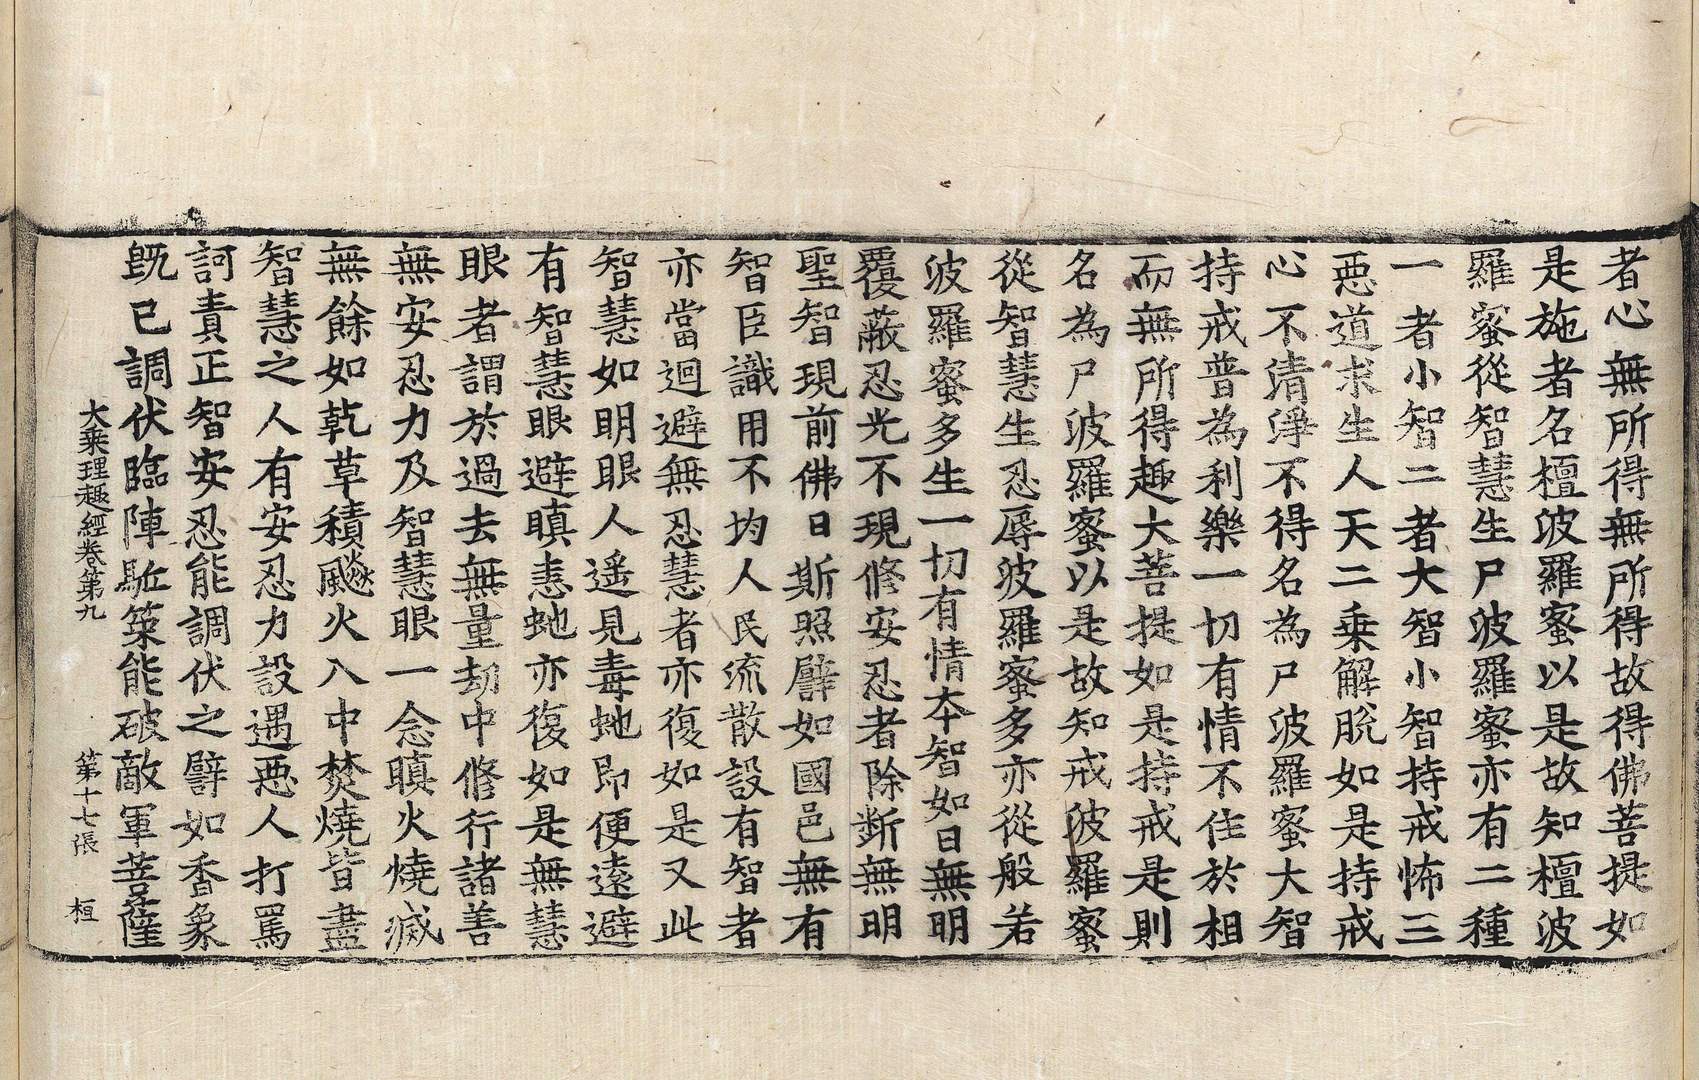 者心無所得無所得故得佛菩提如
是施者名檀波羅蜜以是故知檀波
羅蜜從智慧生尸波羅蜜亦有二種
一者小智二者大智小智持戒怖三
惡道求生人天二乘解脫如是持戒
心不清淨不得名為尸波羅蜜大智
持戒普為利樂一切有情不住於相
而無所得趣大菩提如是持戒是則
名為尸波羅蜜以是故知戒波羅蜜
從智慧生忍辱波羅蜜多亦從般若
波羅蜜多生一切有情本智如日無明
覆蔽忍光不現修安忍者除斷無明
聖智現前佛日斯照譬如國邑無有
智臣識用不均人民流散設有智者
亦當迴避無忍慧者亦復如是又此
智慧如明眼人遥見毒虵即便遠避
有智慧眼避瞋恚虵亦復如是無慧
眼者謂於過去無量劫中修行諸善
無安忍力及智慧眼一念瞋火燒滅
無餘如乾草積飈火入中焚燒皆盡
智慧之人有安忍力設遇惡人打罵
訶責正智安忍能調伏之譬如香象
旣已調伏臨陣駈策能破敵軍菩薩
大乘理趣經卷第九 第十七張 桓